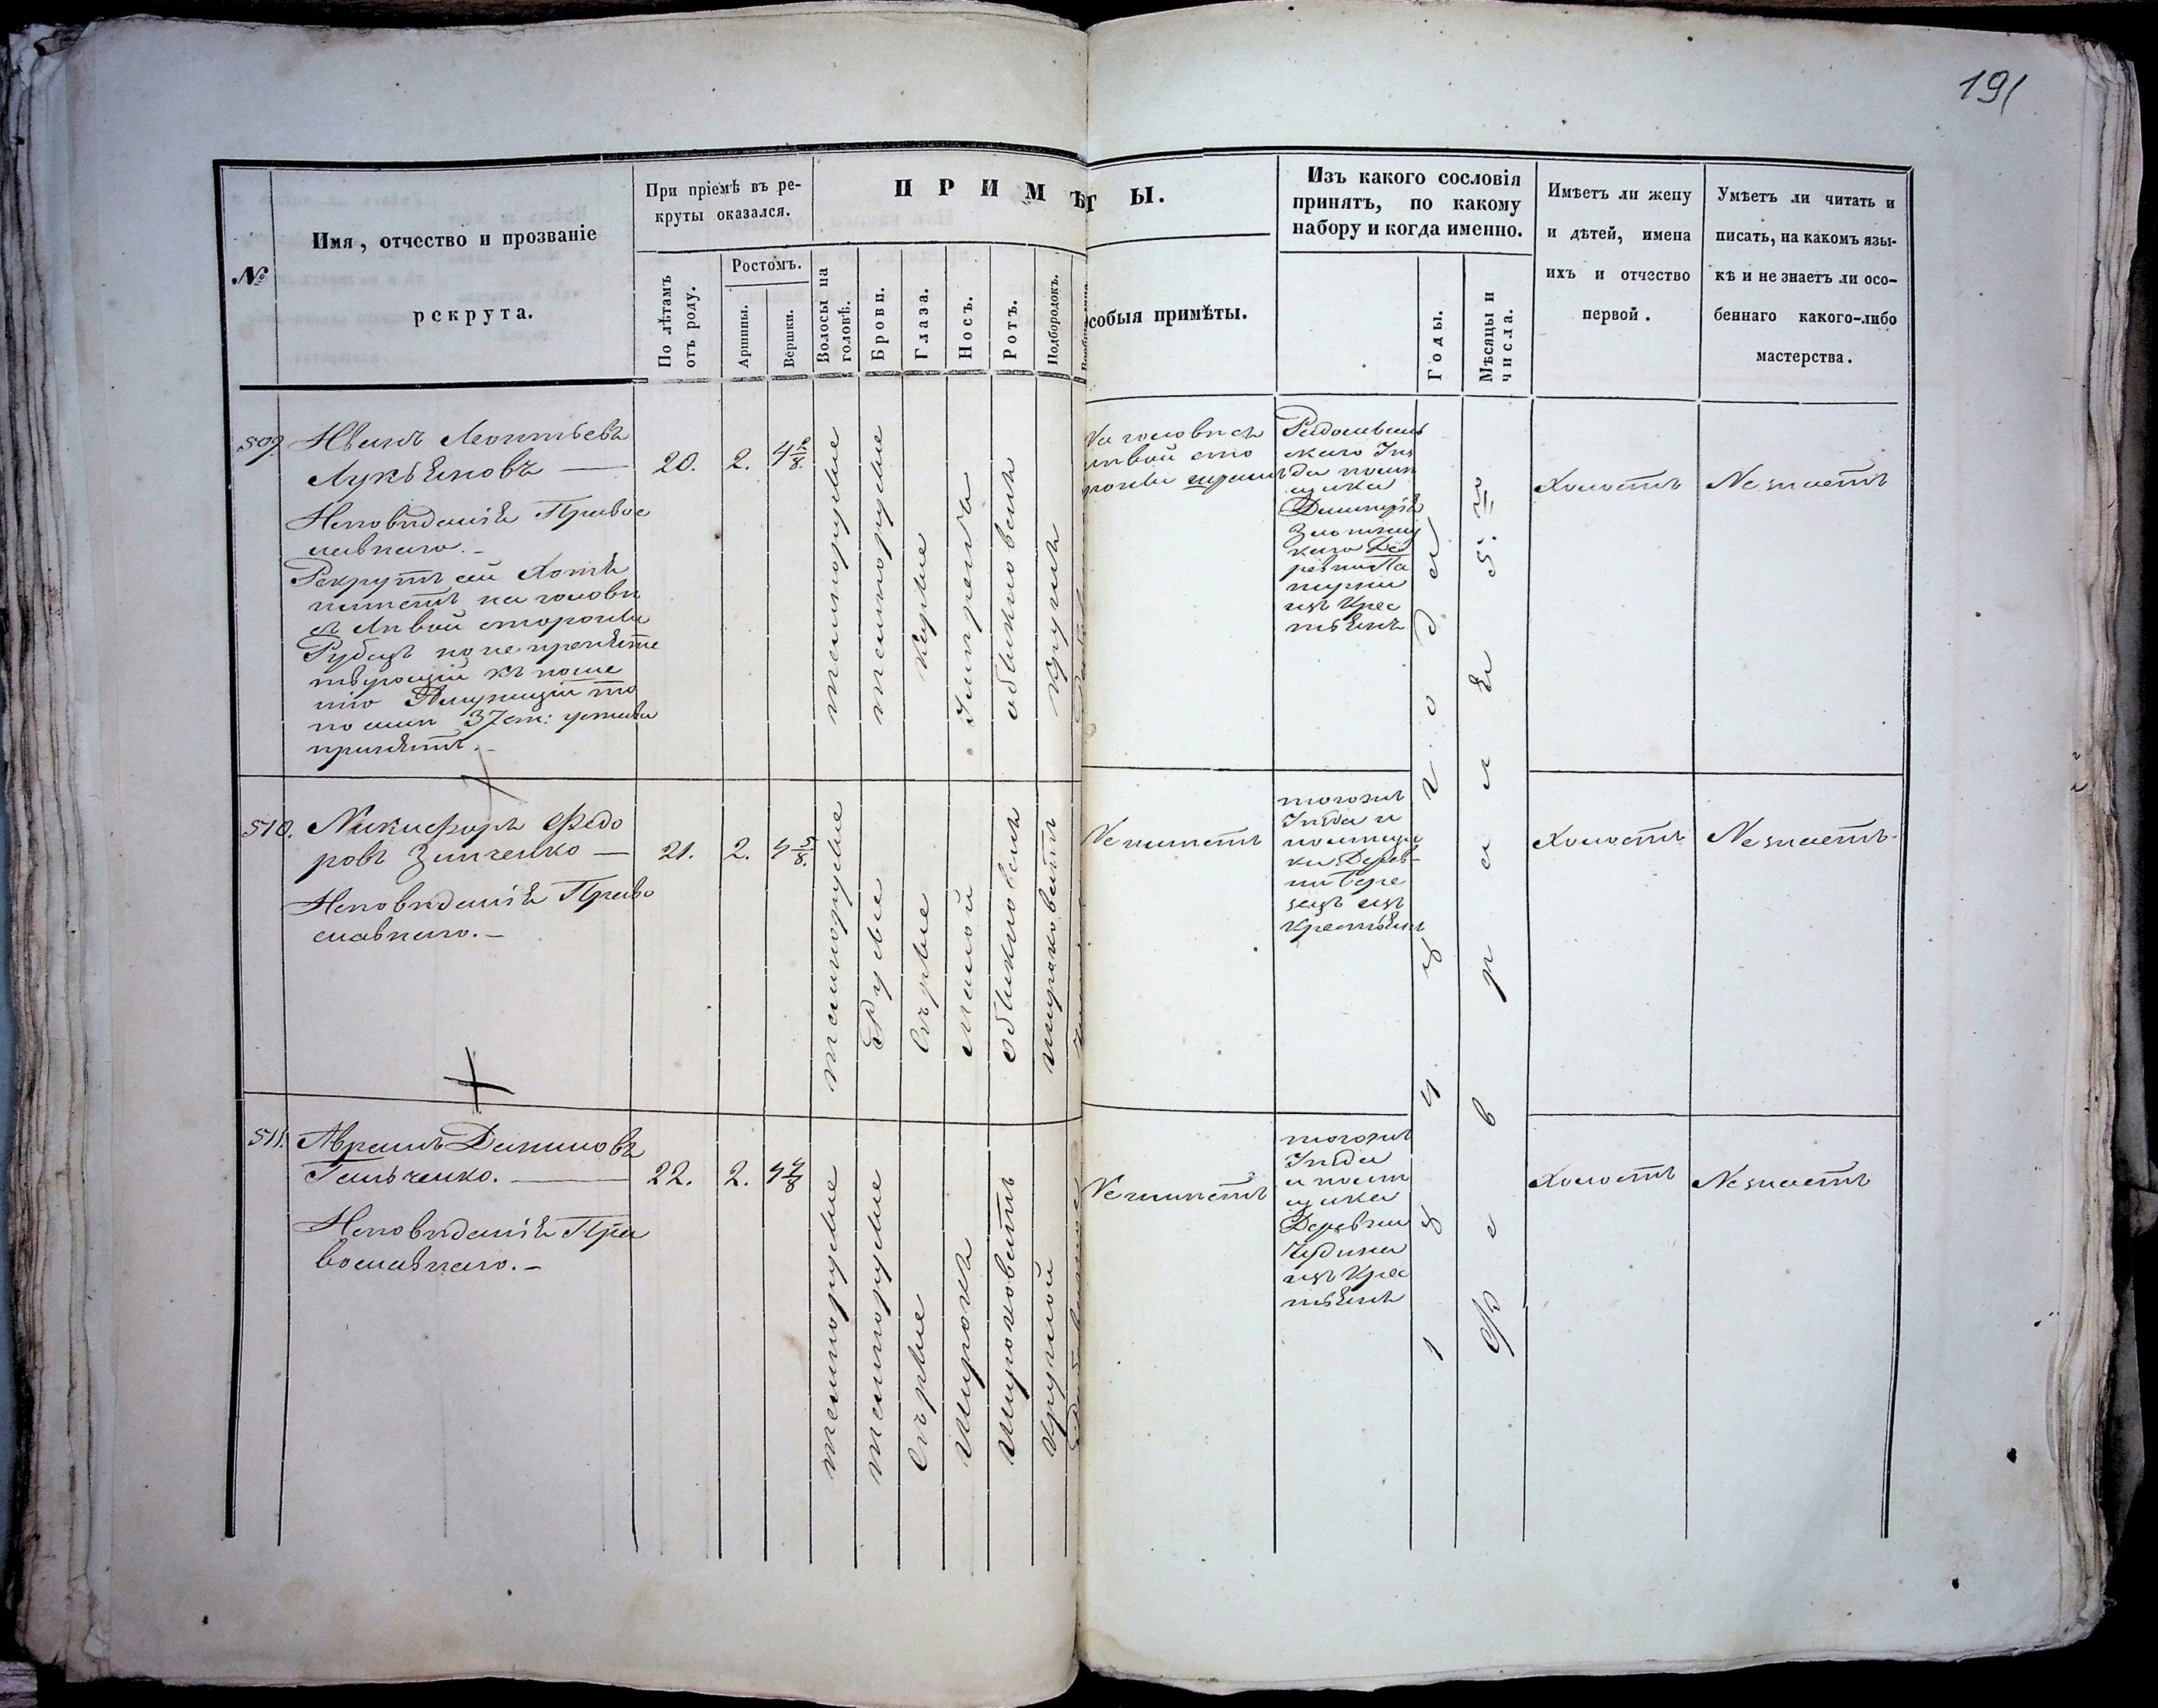 191
№
Имя, отчество и прозваніе
рекрута.
При пріемѣ въ ре-
круты оказался.
По лѣтамъ
отъ роду.
Ростомъ.
Аршины.
Вершки.
ПРИМѢТЫ.
Волосы на
головѣ.
Брови.
Глаза.
Носъ.
Ротъ.
Подбородокъ.
собыя примѣты.
Изъ какого сословія
принятъ, по какому
набору и когда именно.
Годы.
Мѣсяцы и
числа.
Имѣетъ ли жену
и дѣтей, имена
ихъ и отчество
первой.
Умѣетъ ли читать и
писать, на какомъ язы-
кѣ и не знаетъ ли осо-
беннаго какого-либо
мастерства.
509. Иванъ Леонтьевъ
Лукьяновъ —
Исповѣданія Право
славнаго.-
Рекрутъ сей Хотя
имѣетъ на головѣ
съ лѣвой стороны
Рубецъ но не препятс
твующій къ ноше
нію Амуниціи то
по силѣ 37 ст: устава
принятъ.-
20. 2. 4
темнорусые
темнорусые
Карые
Умеренъ
обыкновенъ
Круглъ
На головѣ съ
лѣвой сто
роны шрамъ
Радомысль
скаго Уѣз
да помѣ
щика
Дмитрія
Де
ревни
изъ Крес
тьянъ
Холостъ
Не знаетъ
510. Никифоръ Федо
ровъ Зинченко —
Исповѣданія Право
славнаго.-
21. 2. 4 5/8.
темнорусые
Русые
Сѣрые
малой
обыкновенъ
широковатъ
Не имѣетъ
тогожъ
Уѣзда и
помѣщи
ка Дерев-
ни
изъ
Крестьянъ
Холостъ
Не знаетъ.
511. Аврамъ Даниловъ
Гальченко. —
Исповѣданія Пра
вославнаго.-
22. 2. 4 4/8
темнорусые
темнорусые
Сѣрые
Широкъ
Широковатъ
Круглой
Не имѣетъ
тогожъ
Уѣзда
и помѣ
щика
Деревни
Чудина
изъ Крес
тьянъ
Холостъ
Не знаетъ
года
Февраля 5: